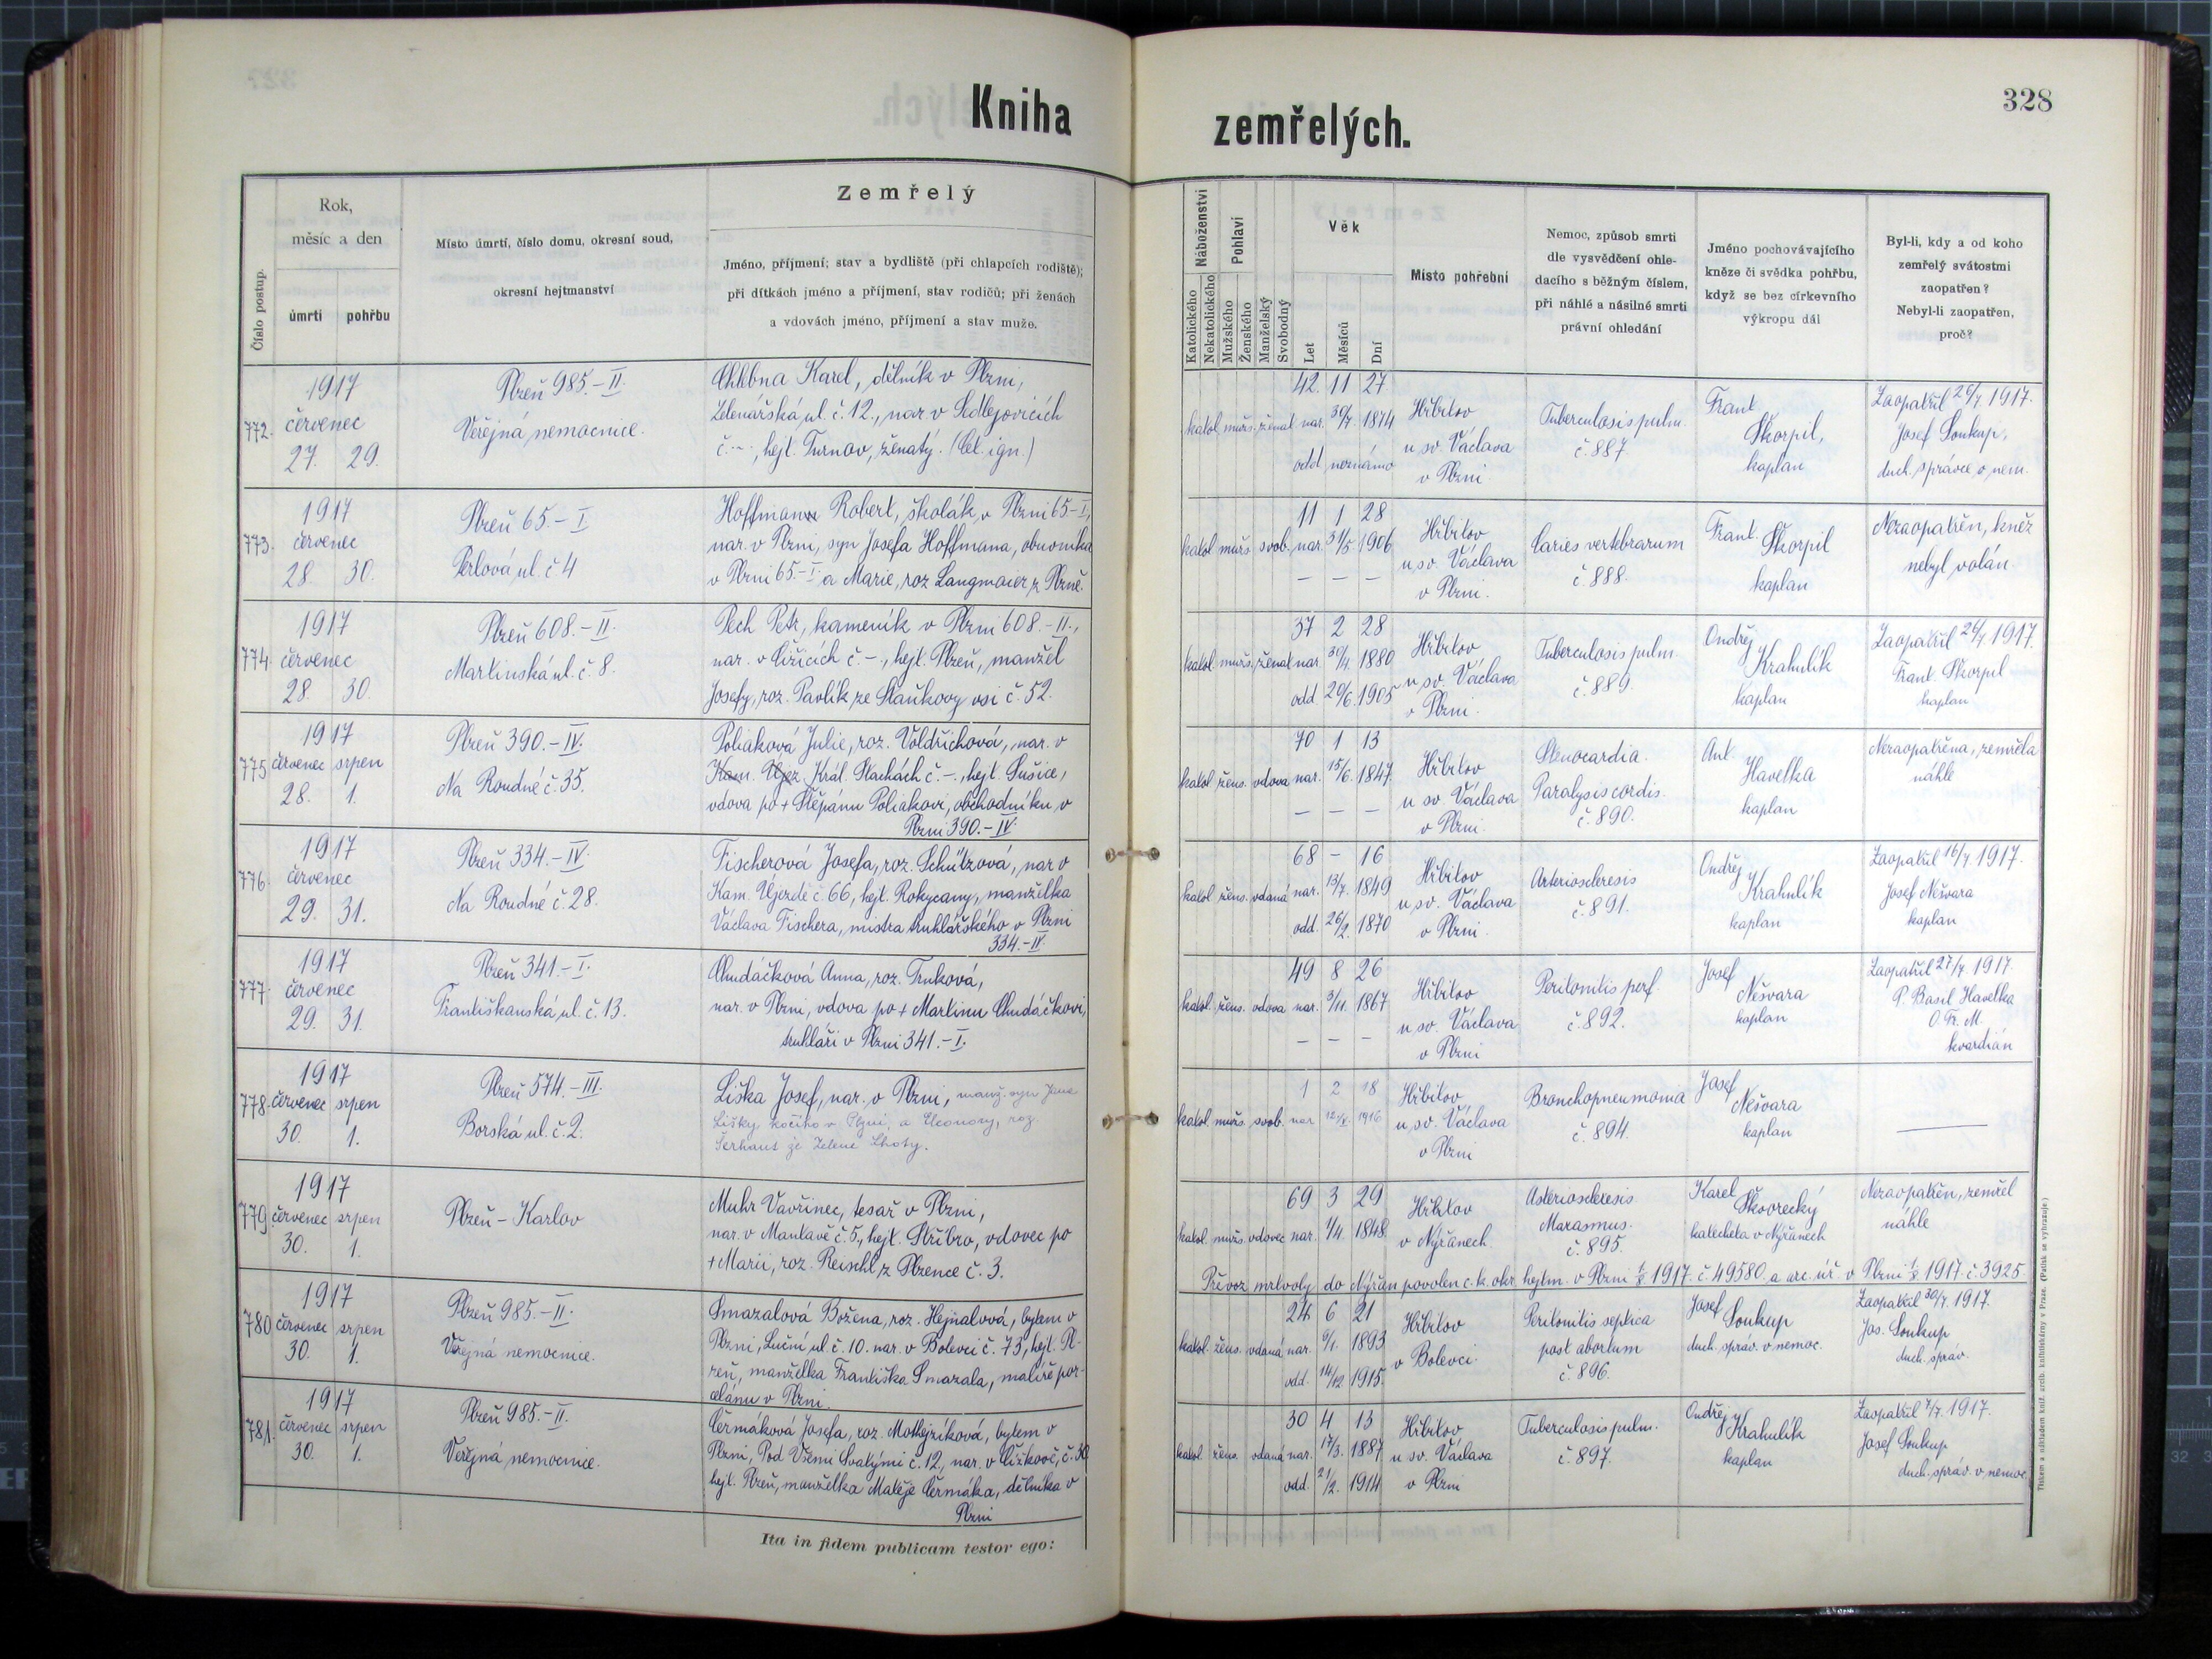 Kniha
zemřelých.
328
Číslo postup.
Rok,
měsíc a den
úmrtí
pohřbu
Místo úmrtí, číslo domu, okresní soud,
okresní hejtmanství
Zemřelý
Jméno, příjmení; stav a bydliště (při chlapcích rodiště);
při dítkách jméno a příjmení, stav rodičů; při ženách
a vdovách jméno, příjmení a stav muže.
Náboženství
Katolického
Nekatolického
Pohlaví
Mužského
Ženského
Manželský
Svobodný
Věk
Let
Měsíců
Dní
Místo pohřební
Nemoc, způsob smrti
dle vysvědčení ohle-
dacího s běžným číslem,
při náhlé a násilné smrti
právní ohledání
Jméno pochovávajícího
kněze či svědka pohřbu,
když se bez církevního
výkropu dál
Byl-li, kdy a od koho
zemřelý svátostmi
zaopatřen?
Nebyl-li zaopatřen,
proč?
772.
1917
červenec
27. 29.
Plzeň 985.-II.
Veřejná nemocnice.
Chlebna Karel, dělník v Plzni,
Zelenářská ul. č. 12., nar. v Sedlejovicích
č. -, hejt. Turnov, ženatý. (Cet. ign.)
katol. mužs. ženat
42. 11 27
nar. 30/7. 1874
odd. neznámo
Hřbitov
u sv. Václava
v Plzni
Tuberculosis pulm.
č. 887
Frant.
Škorpil,
kaplan
Zaopatřil 26/7. 1917.
Josef Soukup,
duch. správce v nem.
773.
1917
červenec
28. 30.
Plzeň 65.-I
Perlová ul. č 4
Hoffmann Robert, školák, v Plzni 65-I,
nar. v Plzni, syn Josefa Hoffmana, obuvníka
v Plzni 65.-I. a Marie, roz. Langmaier z Plzně.
katol. mužs. svob.
11 1 28
nar. 31/5. 1906
- - -
Hřbitov
u sv. Václava
v Plzni.
Caries vertebrarum
č. 888.
Frant. Škorpil
kaplan
Nezaopatřen, kněz
nebyl volán.
774.
1917
červenec
28. 30.
Plzeň 608.-II.
Martinská ul. č. 8.
Pech Petr, kameník v Plzni 608.-II.,
nar. v Čižicích č. -., hejt. Plzeň, manžel
Josefy, roz. Pavlík ze Staňkovy vsi č. 52.
katol. mužs. ženat
37 2 28
nar. 30/4. 1880
odd. 20/6. 1905
Hřbitov
u sv. Václava
v Plzni.
Tuberculosis pulm.
č. 889.
Ondřej
Krahulík
kaplan
Zaopatřil 26/7. 1917.
Frant. Škorpil
kaplan
775
1917
červenec srpen
28. 1.
Plzeň 390.-IV.
Na Roudné č. 35.
Poliaková Julie, roz. Voldřichová, nar. v
Kam. Újez. Král. Stachách č. -., hejt. Sušice,
vdova po + Štěpánu Poliakovi, obchodníku v
Plzni 390.-IV.
katol. žens. vdova
70 1 13
nar. 15/6. 1847
- - -
Hřbitov
u sv. Václava
v Plzni.
Stenocardia.
Paralysis cordis.
č. 890.
Ant.
Havelka
kaplan
Nezaopatřena, zemřela
náhle
776.
1917
červenec
29. 31.
Plzeň 334.-IV.
Na Roudné č. 28.
Fischerová Josefa, roz. Schützová, nar. v
Kam. Újezdě č. 66, hejt. Rokycany, manželka
Václava Fischera, mistra truhlářského v Plzni
334.-IV.
katol. žens. vdaná
68 - 16
nar. 13/7. 1849
odd. 26/2. 1870
Hřbitov
u sv. Václava
v Plzni.
Arteriosclerosis
č. 891.
Ondřej
Krahulík
kaplan
Zaopatřil 16/7. 1917.
Josef Nešvara
kaplan
777.
1917
červenec
29. 31.
Plzeň 341.-I.
Františkanská ul. č. 13.
Chudáčková Anna, roz. Trnková,
nar. v Plzni, vdova po + Martinu Chudáčkovi,
truhláři v Plzni 341.-I.
katol. žens. vdova
49 8 26
nar. 3/11. 1867
- - -
Hřbitov
u sv. Václava
v Plzni
Peritonitis perf.
č. 892.
Josef
Nešvara
kaplan
Zaopatřil 27/7. 1917.
P. Basil Havelka
O. Fr. M.
kvardián
778.
1917
červenec srpen
30. 1.
Plzeň 574.-III.
Borská ul. č. 2.
Liška Josef, nar. v Plzni, manž. syn Jana
Lišky, kočího v Plzni, a Eleonory, roz.
Šerhaus ze Zelené Lhoty.
katol. mužs. svob.
1 2 18
nar. 1916
Hřbitov
u sv. Václava
v Plzni
Bronchopneumonia
č. 894.
Josef
Nešvara
kaplan
779.
1917
červenec srpen
30. 1.
Plzeň - Karlov
Muhr Vavřinec, tesař v Plzni,
nar. v Mantavě č. 5., hejt. Stříbro, vdovec po
+ Marii, roz. Reischl z Plzence č. 3.
katol. mužs. vdovec
69 3 29
nar. 1/4. 1848
Hřbitov
v Nýřanech
Arteriosclerosis
Marasmus.
č. 895.
Karel
Škvorecký
katecheta v Nýřanech
Nezaopatřen, zemřel
náhle
Převoz mrtvoly do Nýřan povolen c. k. okr. hejtm. v Plzni 1/8 1917. č. 49580 a arc. úř. v Plzni 1/8 1917. č. 3925
780
1917
červenec srpen
30. 1.
Plzeň 985.-II.
Veřejná nemocnice.
Smazalová Božena, roz. Hejnalová, bytem v
Plzni, Luční ul. č. 10. nar. v Bolevci č. 73, hejt. Pl-
zeň, manželka Františka Smazala, malíře por-
celánu v Plzni.
katol. žens. vdaná
24 6 21
nar. 9/1. 1893
odd. 14/12. 1915.
Hřbitov
v Bolevci
Peritonitis septica
post abortum
č. 896.
Josef
Soukup
duch. správ. v nemoc.
Zaopatřil 30/7. 1917.
Jos. Soukup
duch. správ.
781.
1917
červenec srpen
30. 1.
Plzeň 985.-II.
Veřejná nemocnice.
Čermáková Josefa, roz. Motejzíková, bytem v
Plzni, Pod Všemi Svatými č. 12., nar. v Čižkově, č. 30
hejt. Plzeň, manželka Matěje Čermáka, dělníka v
Plzni
katol. žens. vdaná
30 4 13
nar. 17/3. 1887
odd. 21/2. 1914
Hřbitov
u sv. Václava
v Plzni
Tuberculosis pulm.
č. 897.
Ondřej
Krahulík
kaplan
Zaopatřil 7/7. 1917.
Josef Soukup
duch. správ. v nemoc.
Ita in fidem publicam testor ego:
Tiskem a nákladem kníž. arcib. knihtiskárny v Praze. (Patisk se vyhrazuje.)